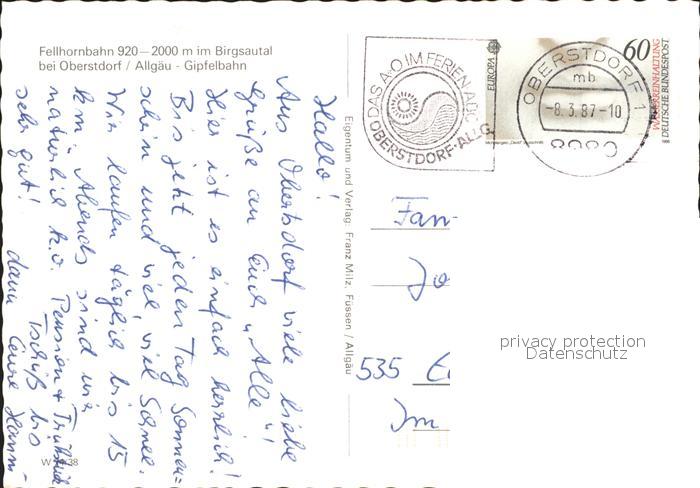 Fellhornbahn 920—2000 m im Birgsautal
bei Oberstdorf / Allgäu - Gipfelbahn
Hallo!
Aus Oberstdorf viele liebe
Grüße an Euch „Alle"!
Hier ist es einfach herrlich!
Bis jetzt jeden Tag Sonnen=
schein und viel, viel Schnee.
Wir laufen täglich bis 15
km. Abends sind wir
natürlich k.o. Pension + Frühstück
sehr gut! Tschüß bis
dann Eure
Eigentum und Verlag: Franz Milz, Füssen / Allgäu
DAS A-O IM FERIEN ABC
OBERSTDORF·ALLG.
EUROPA
OBERSTDORF 1
mb
-8.3.87-10
60
DEUTSCHE BUNDESPOST
Fam
Jo
535
Im
privacy protection
Datenschutz